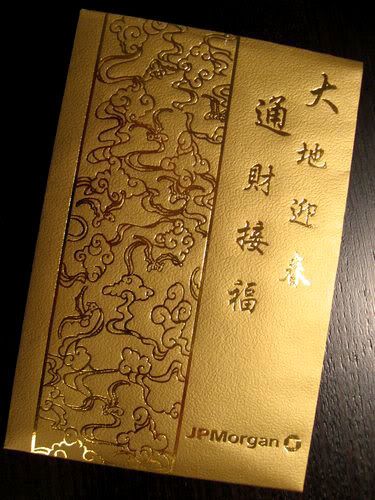 大地迎春
通財接福
JPMorgan